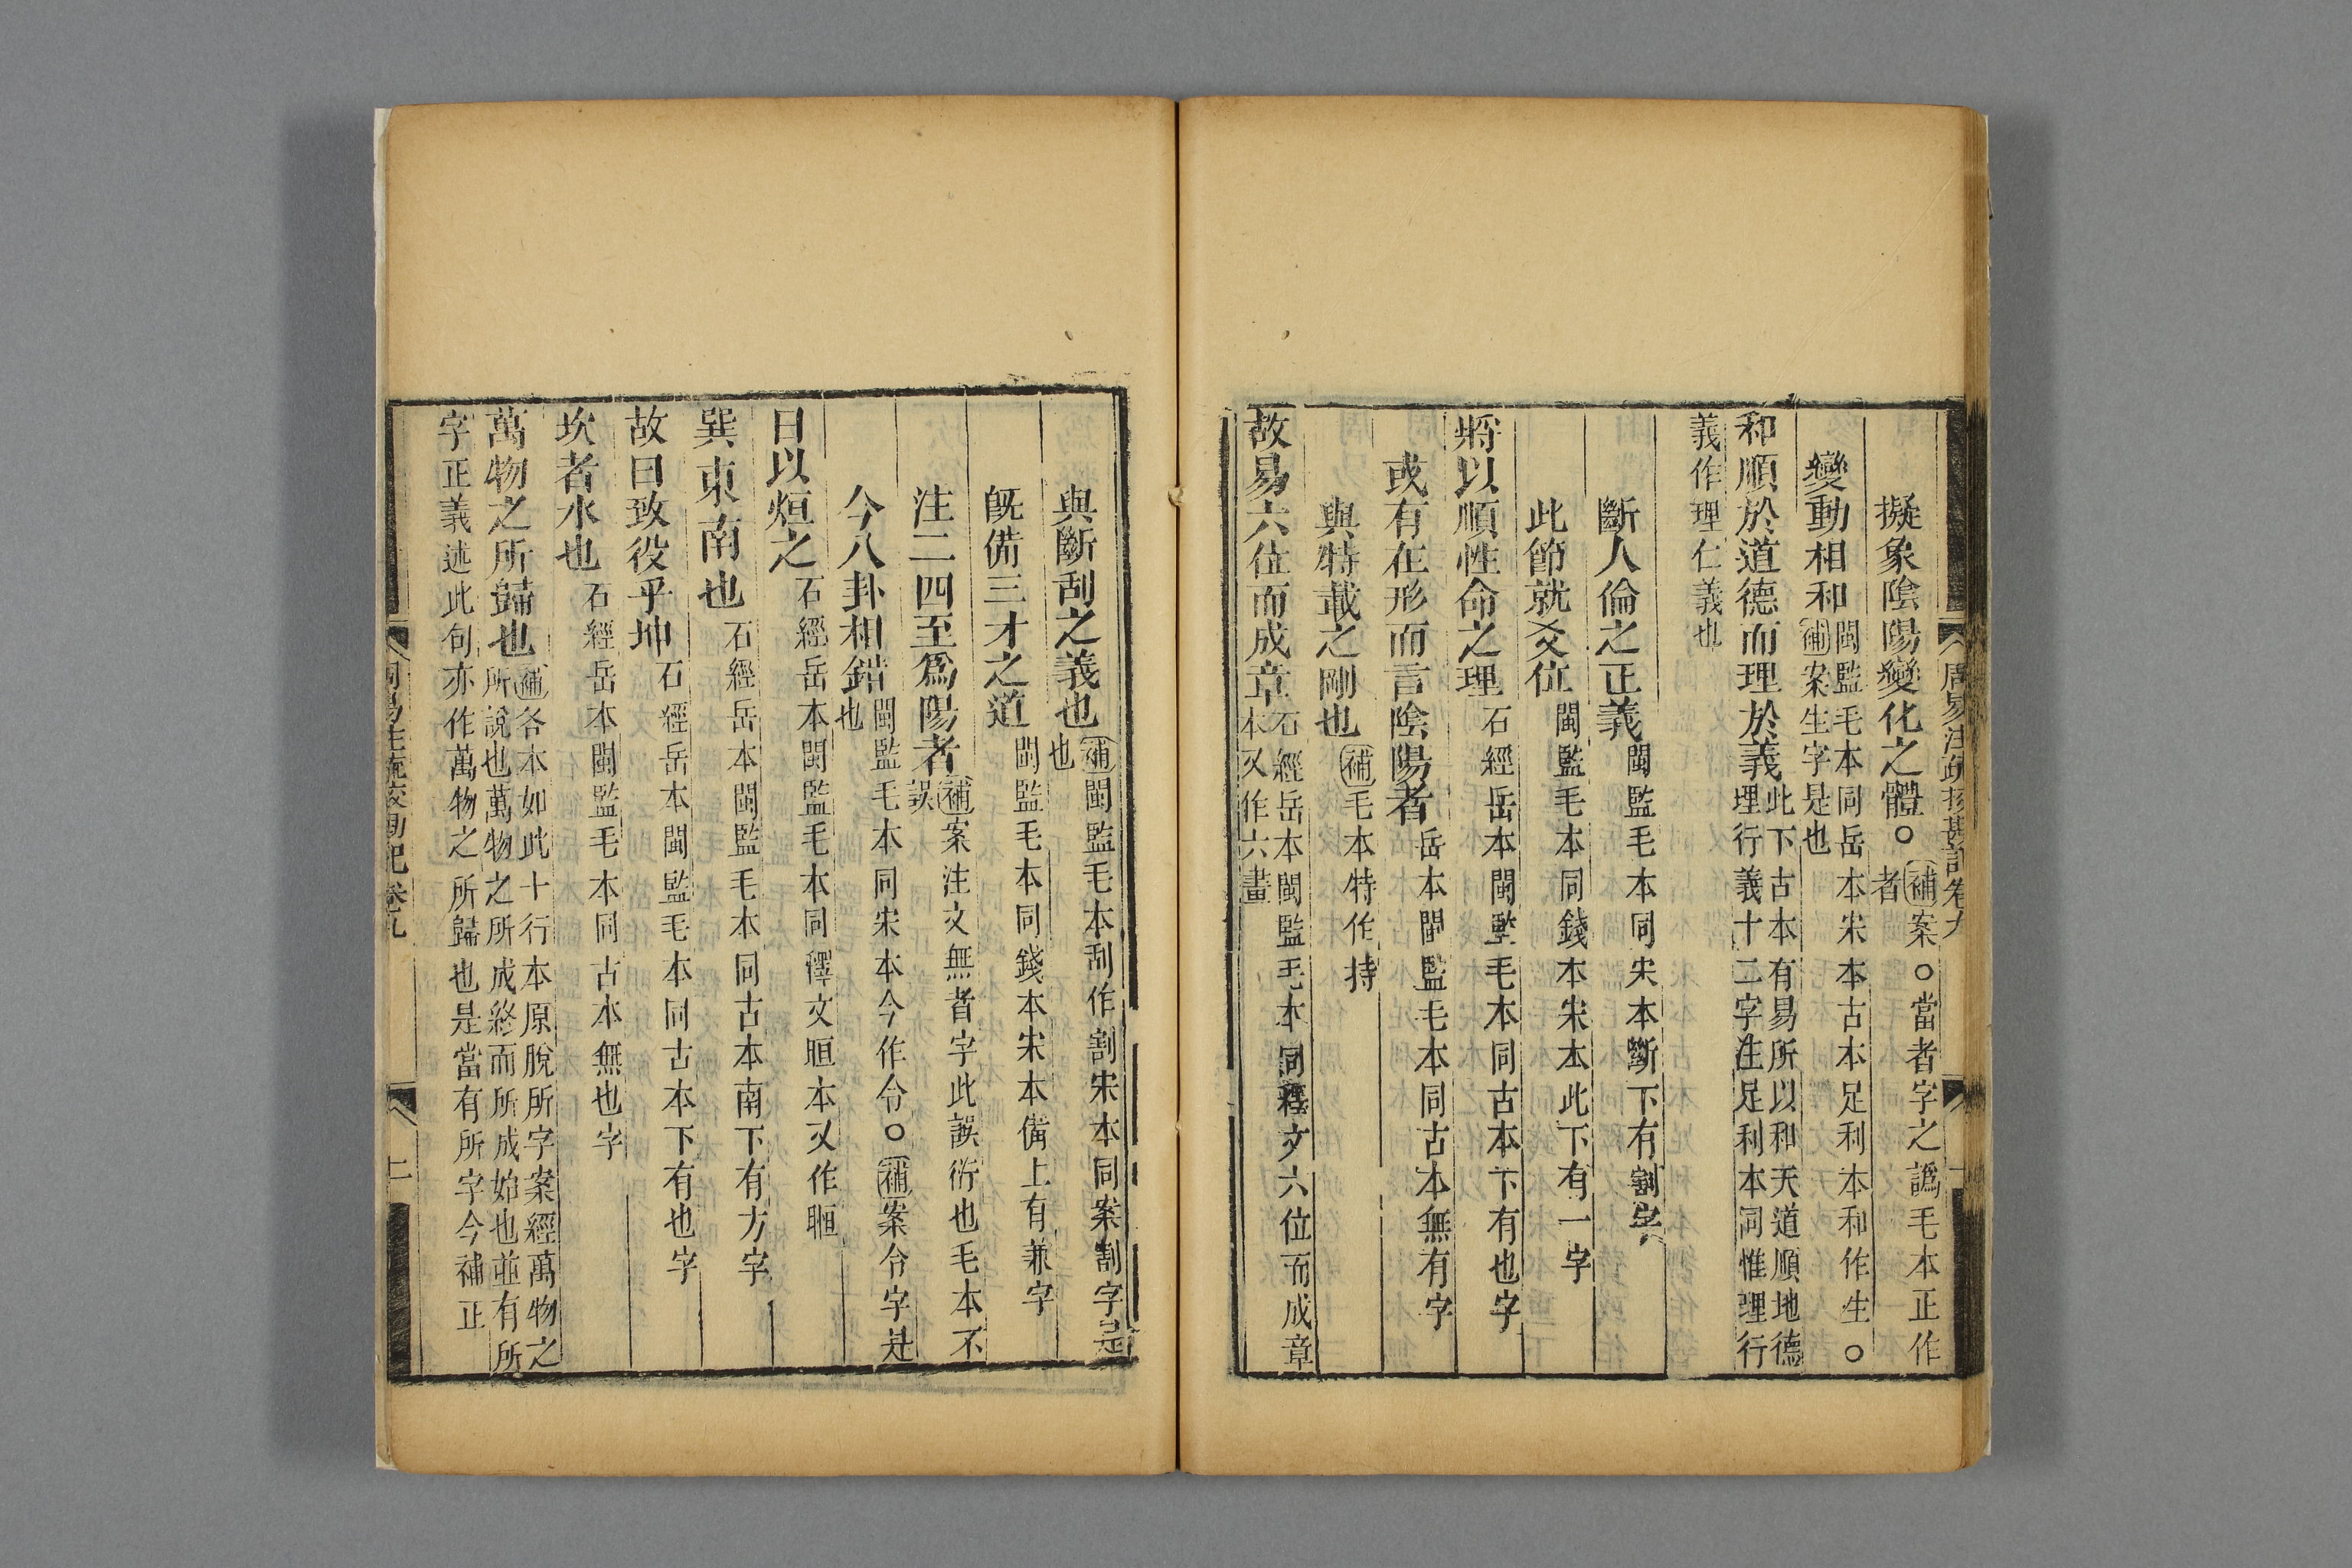 周易注疏挍勘記卷九
擬象陰陽變化之體○補案○當者字之譌毛本正作者
變動相和閩監毛本同岳本宋本古本足利本和作生○補案生字是也
和順於道德而理於義此下古本有易所以和天道順地德理行義十二字注足利本同惟理行
義作理仁義也
斷人倫之正義閩監毛本同宋本斷下有割字
此節就爻位閩監毛本同錢本宋本此下有一字
將以順性命之理石經岳本閩監毛本同古本下有也字
或有在形而言陰陽者岳本閩監毛本同古本無有字
與特載之剛也補毛本特作持
故易六位而成章石經岳本閩監毛本同釋文六位而成章本又作六畫
與斷刮之義也補閩監毛本刮作割宋本同案割字是也
旣備三才之道閩監毛本同錢本宋本備上有兼字
注二四至爲陽者補案注文無者字此誤衍也毛本不誤
今八卦相錯閩監毛本同宋本今作令○補案令字是也
日以烜之石經岳本閩監毛本同釋文晅本又作暅
巽東南也石經岳本閩監毛本同古本南下有方字
故曰致役乎坤石經岳本閩監毛本同古本下有也字
坎者水也石經岳本閩監毛本同古本無也字
萬物之所歸也補各本如此十行本原脫所字案經萬物之所說也萬物之所成終而所成始也並有所
字正義述此句亦作萬物之所歸也是當有所字今補正
周易注疏校勘記卷九
二